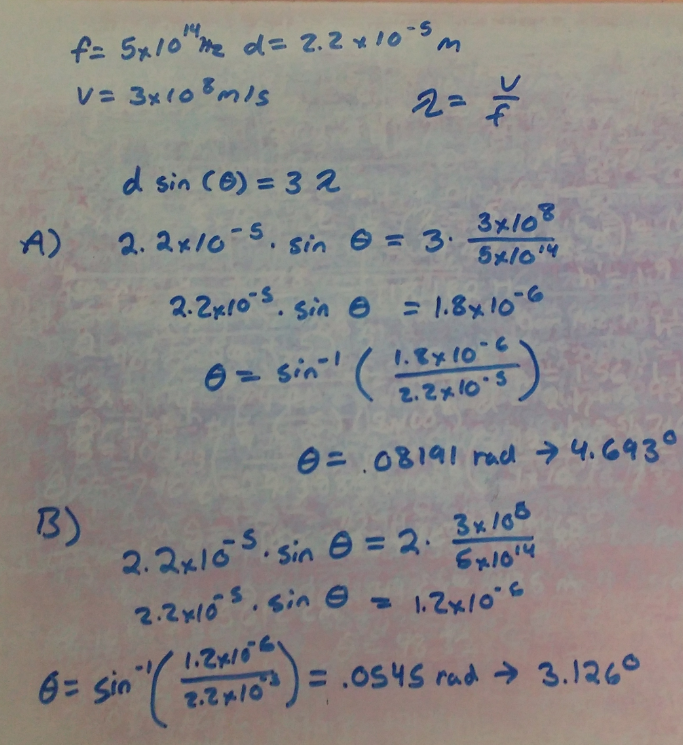 f = 5x10^14 Hz d = 2.2 x 10^-5 m
v = 3x10^8 m/s λ = v/f
d sin (θ) = 3 λ
A) 2.2x10^-5 · sin θ = 3 · 3x10^8/5x10^14
2.2x10^-5 · sin θ = 1.8x10^-6
θ = sin^-1 (1.8x10^-6/2.2x10^-5)
θ = .08191 rad → 4.693°
B)
2.2x10^-5 · sin θ = 2 · 3x10^8/5x10^14
2.2x10^-5 · sin θ = 1.2x10^-6
θ = sin^-1 (1.2x10^-6/2.2x10^-5) = .0545 rad → 3.126°